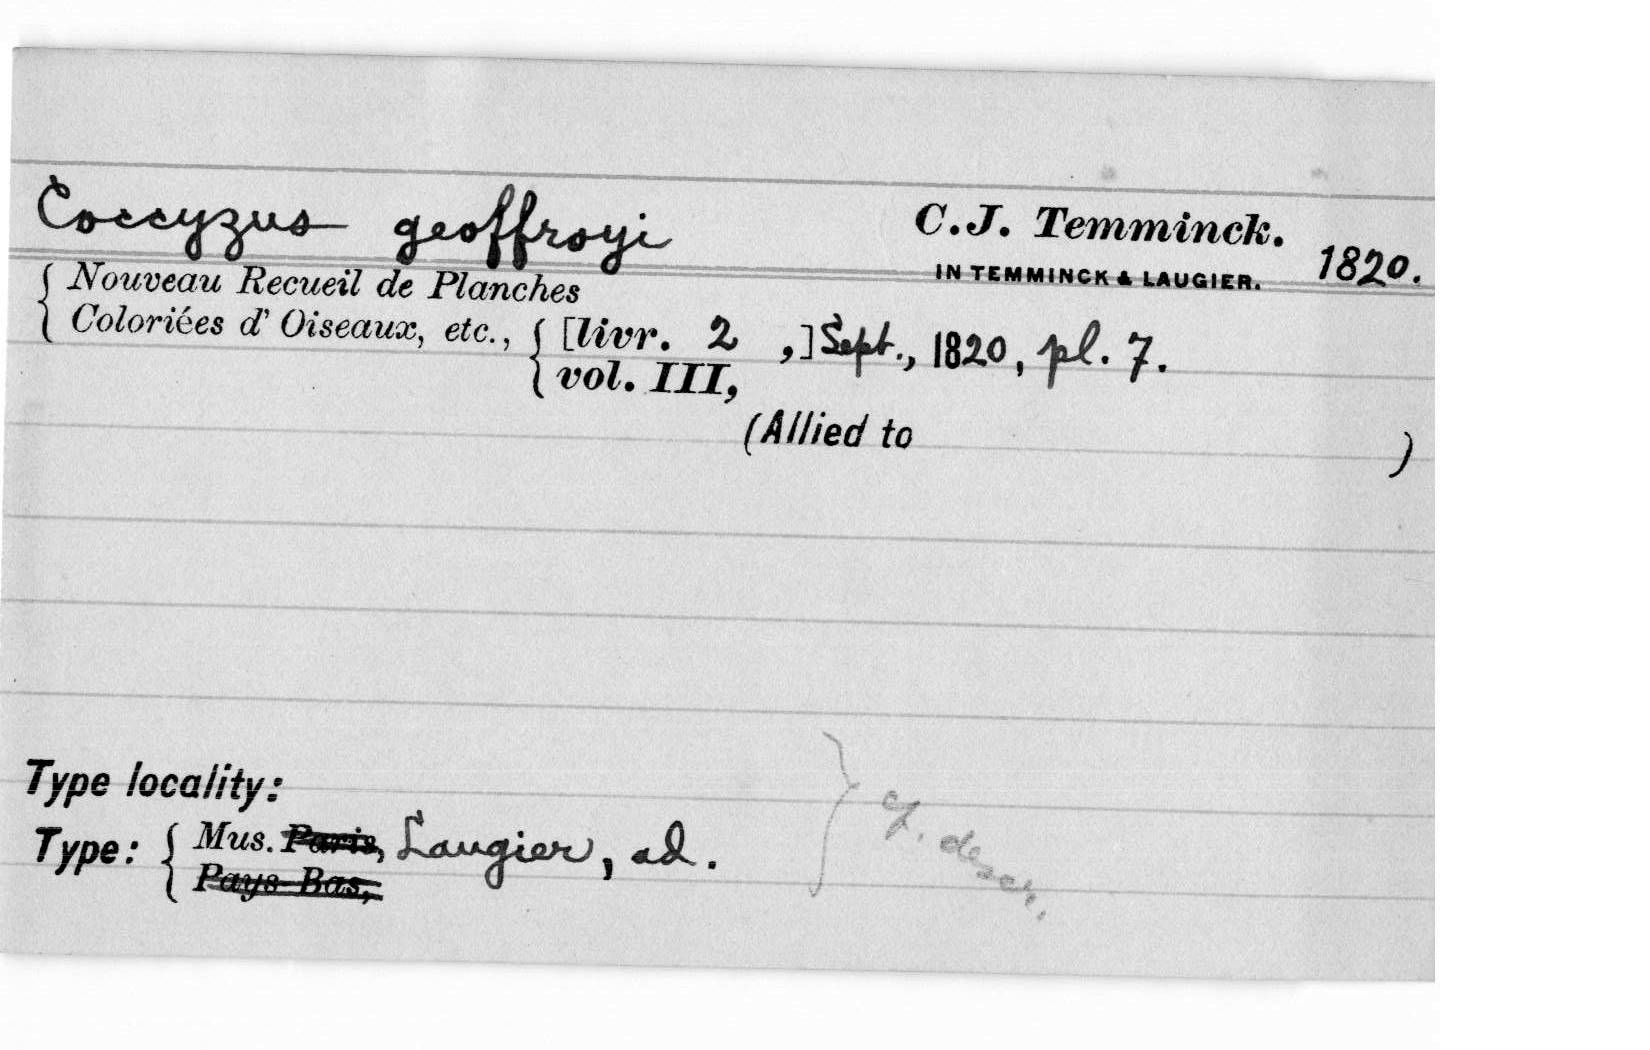 Coccyzus geoffroyi C.J. Temminck.
IN TEMMINCK & LAUGIER. 1820.
{ Nouveau Recueil de Planches
Coloriées d' Oiseaux, etc., { [livr. 2 ,] Sept., 1820, pl. 7.
vol. III,
(Allied to )
Type locality:
Type: { Mus. Paris, Laugier, ad.
Pays-Bas,
} cf. descr.